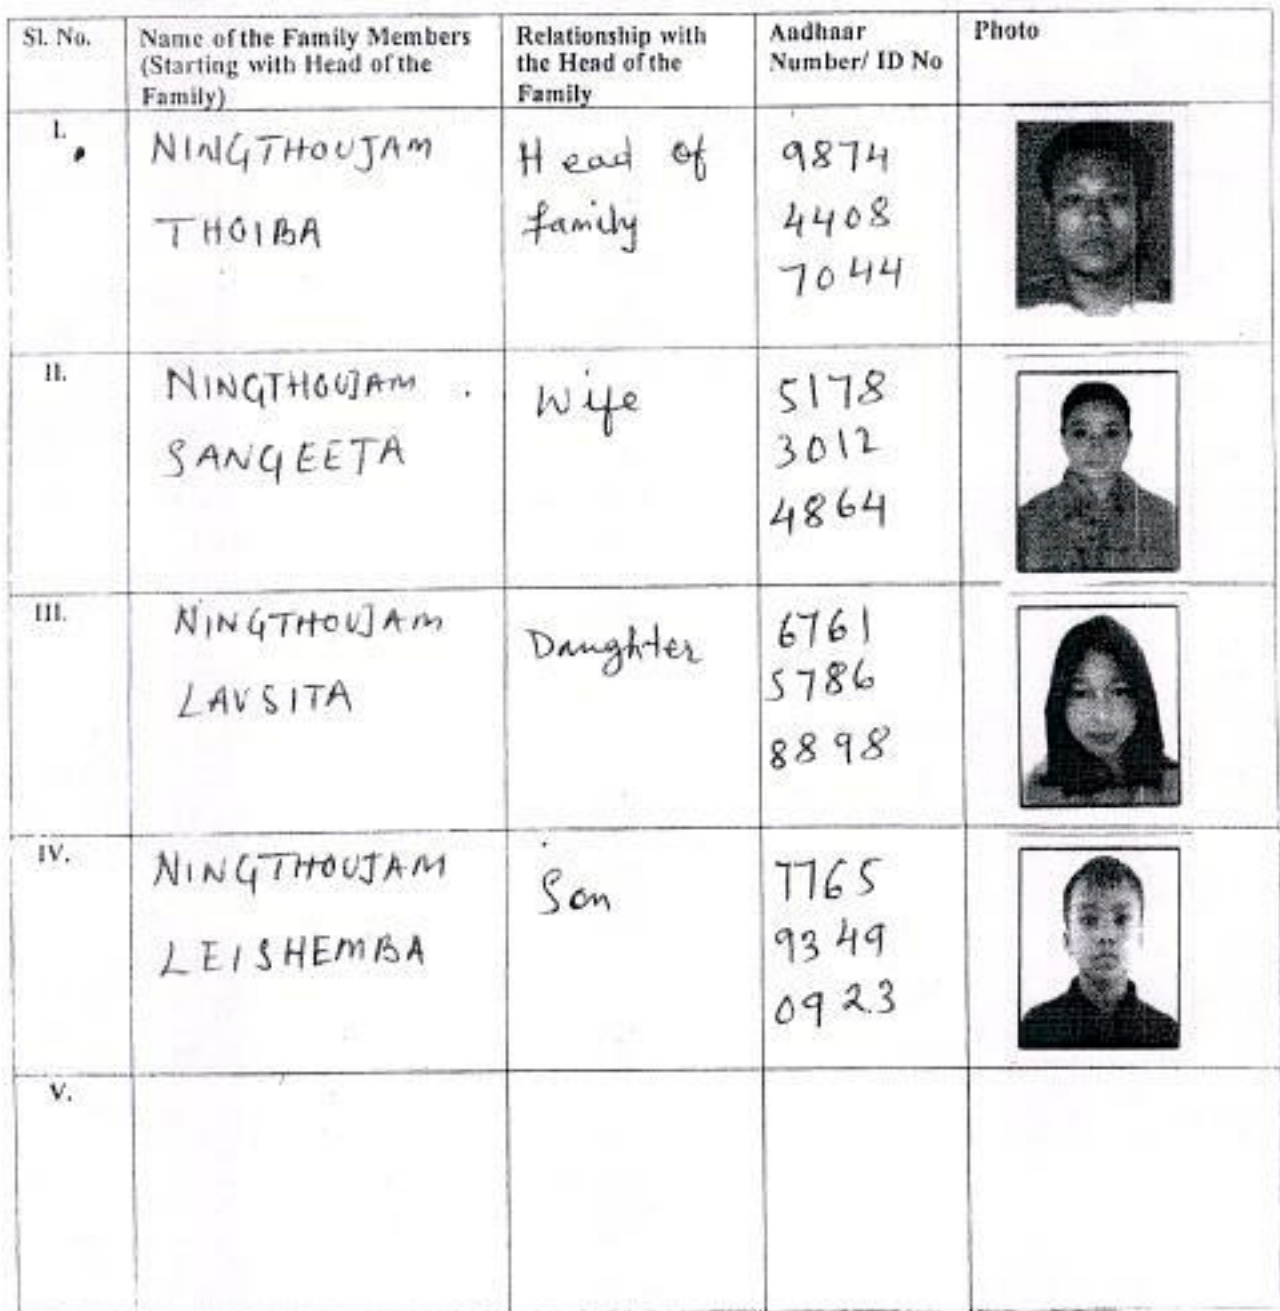 Sl. No.
Name of the Family Members
(Starting with Head of the
Family)
Relationship with
the Head of the
Family
Aadhaar
Number/ ID No
Photo
I.
NINGTHOUJAM
THOIBA
Head of
family
9874
4408
7044
II.
NINGTHOUJAM
SANGEETA
Wife
5178
3012
4864
III.
NINGTHOUJAM
LAVSITA
Daughter
6761
5786
8898
IV.
NINGTHOUJAM
LEISHEMBA
Son
7765
9349
0923
V.